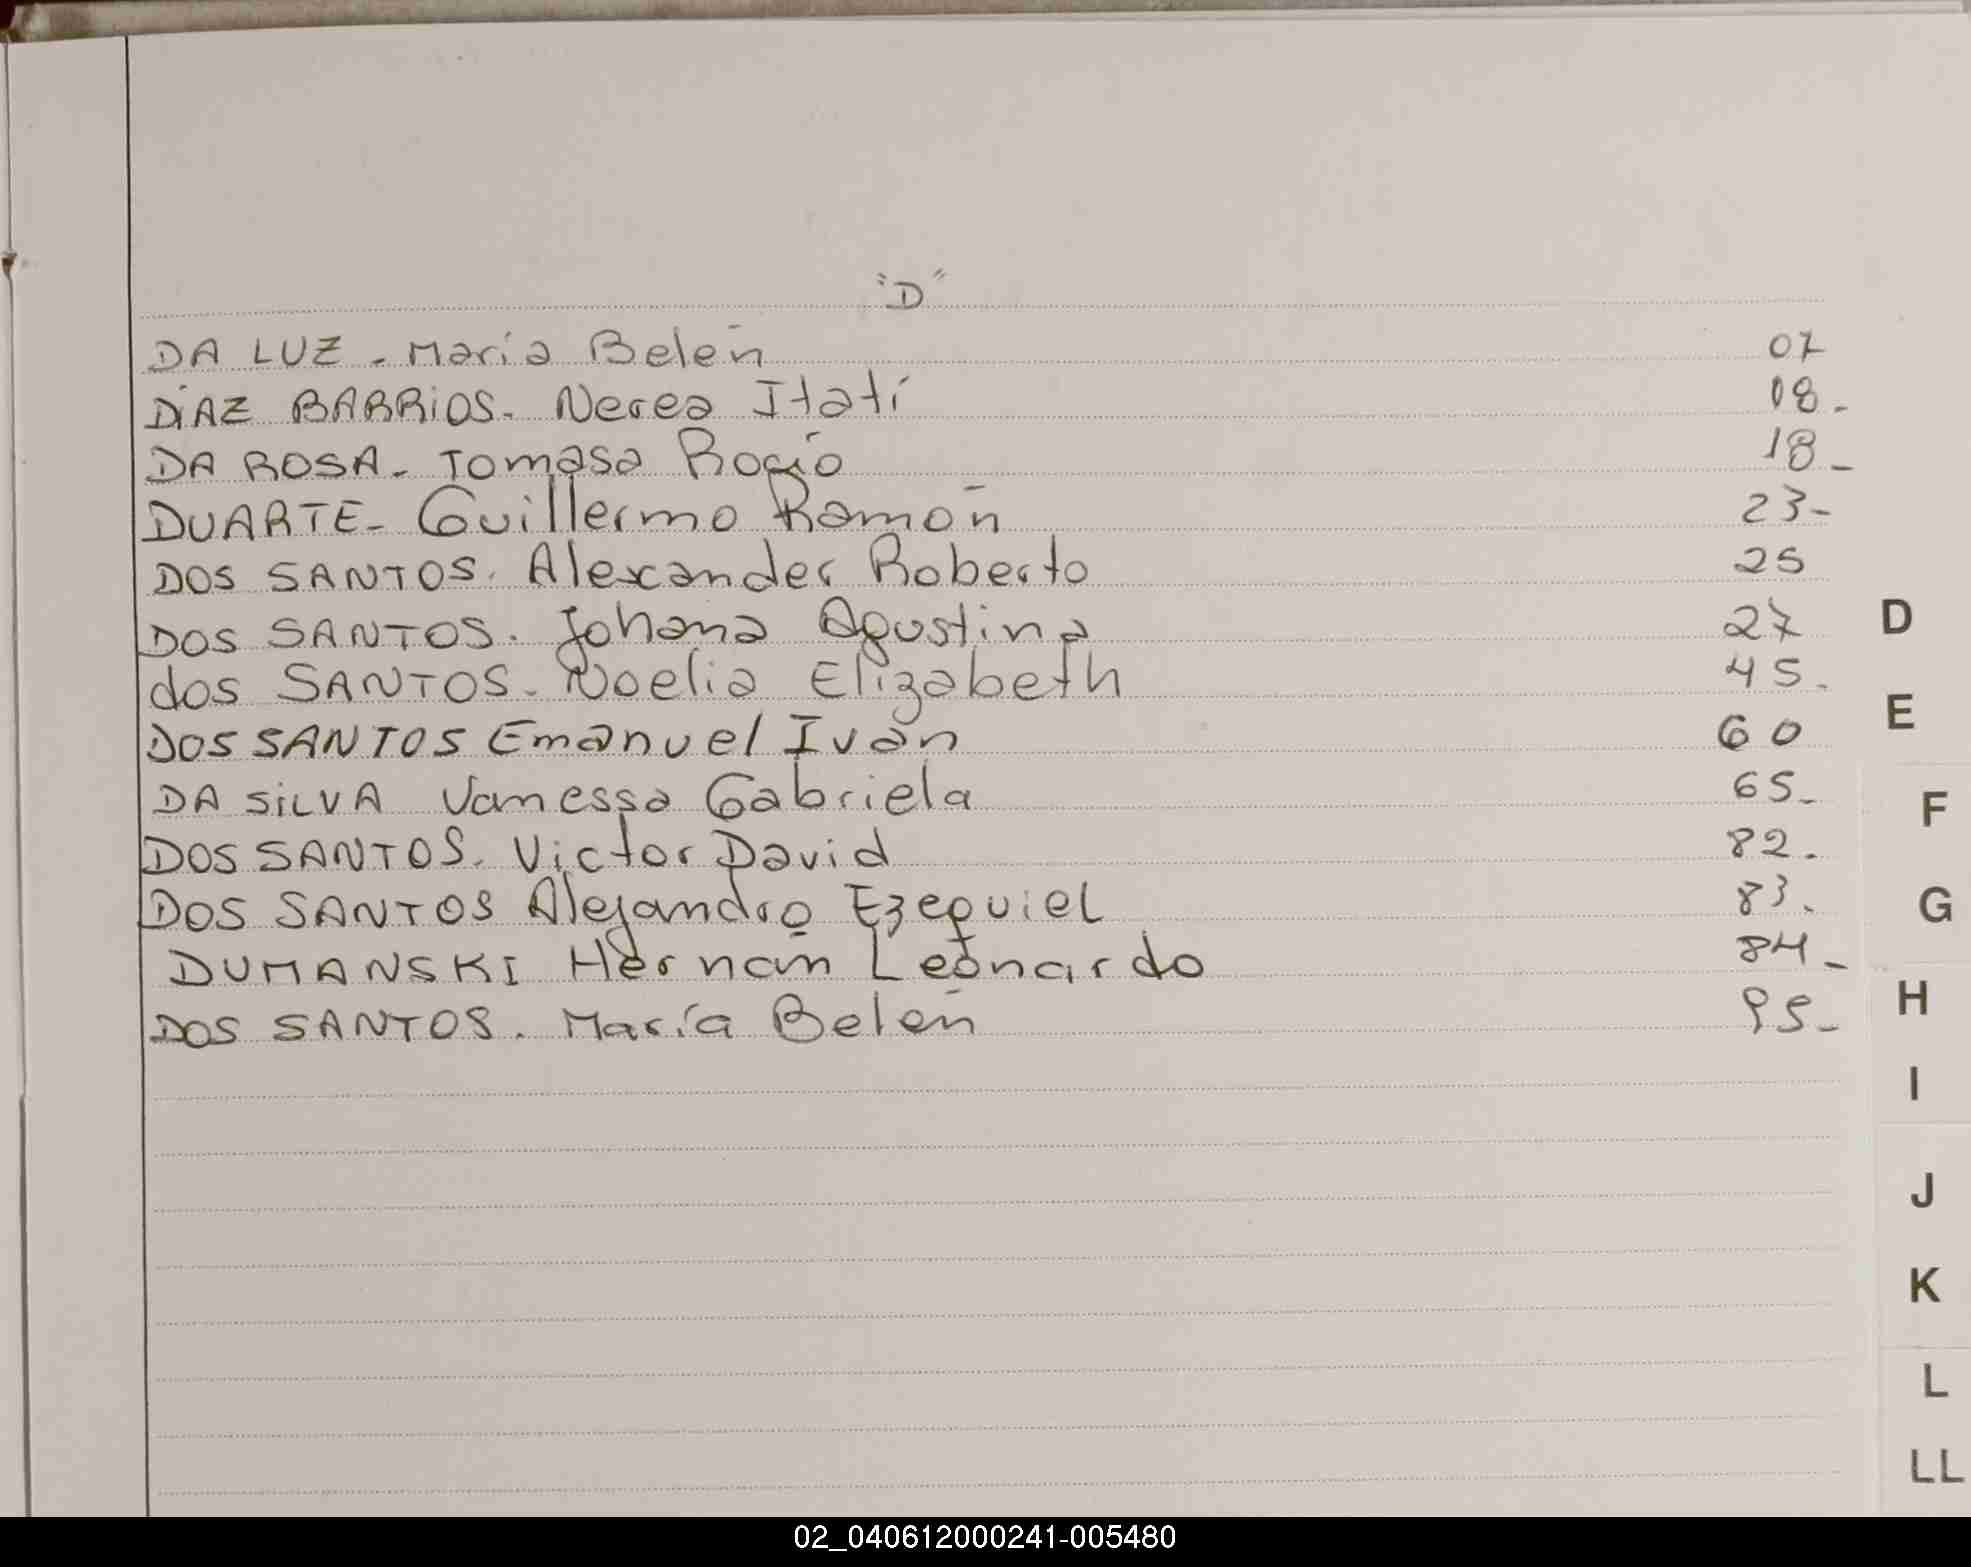 "D"
DA LUZ - María Belén 07
DÍAZ BARRIOS - Nerea Itatí 08-
DA ROSA - Tomasa Rocío 18-
DUARTE - Guillermo Ramón 23-
DOS SANTOS. Alexander Roberto 25
DOS SANTOS. Johana Agustina 27
dos SANTOS - Noelia Elizabeth 45.
DOS SANTOS Emanuel Iván 60
DA SiLVA Vanessa Gabriela 65-
DOS SANTOS. Victor David 82.
DOS SANTOS Alejandro Ezequiel 83.
DUMANSKI Hernán Leonardo 84-
DOS SANTOS. María Belén 95-
D
E
F
G
H
I
J
K
L
LL
02_040612000241-005480